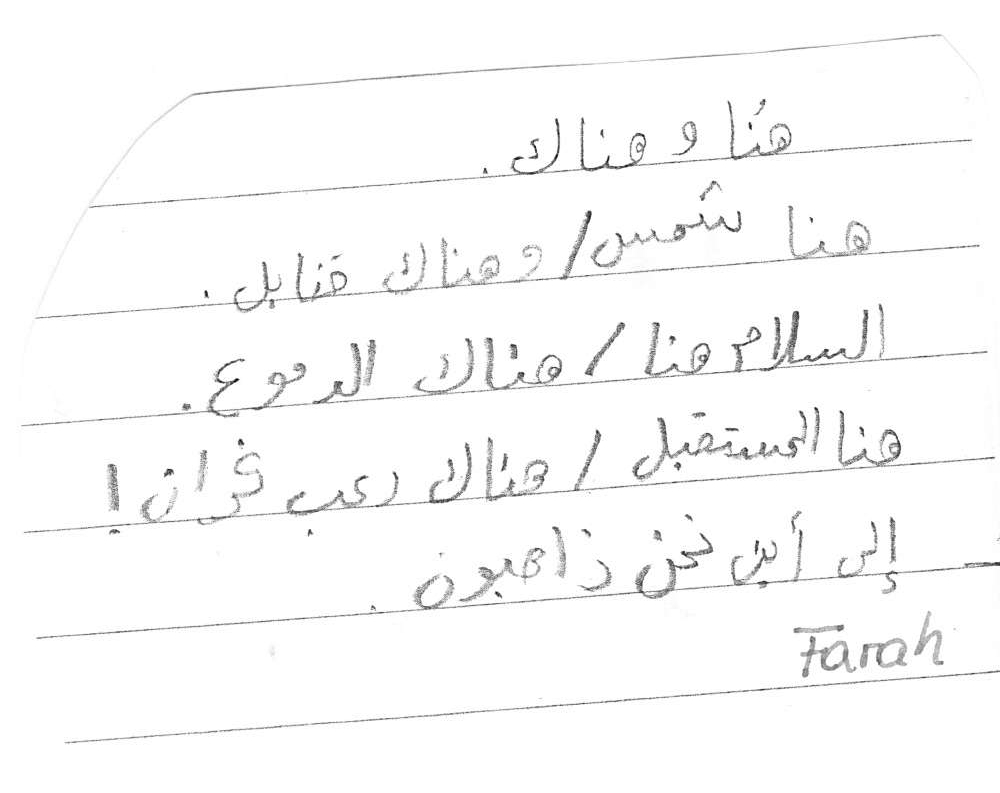 هنُا و هناك.
هنا شمس/ وهناك قنابل.
السلام هنا / هناك الدموع.
هنا المستقبل / هناك رعب !
إلى أين نحن ذاهبون.
Farah